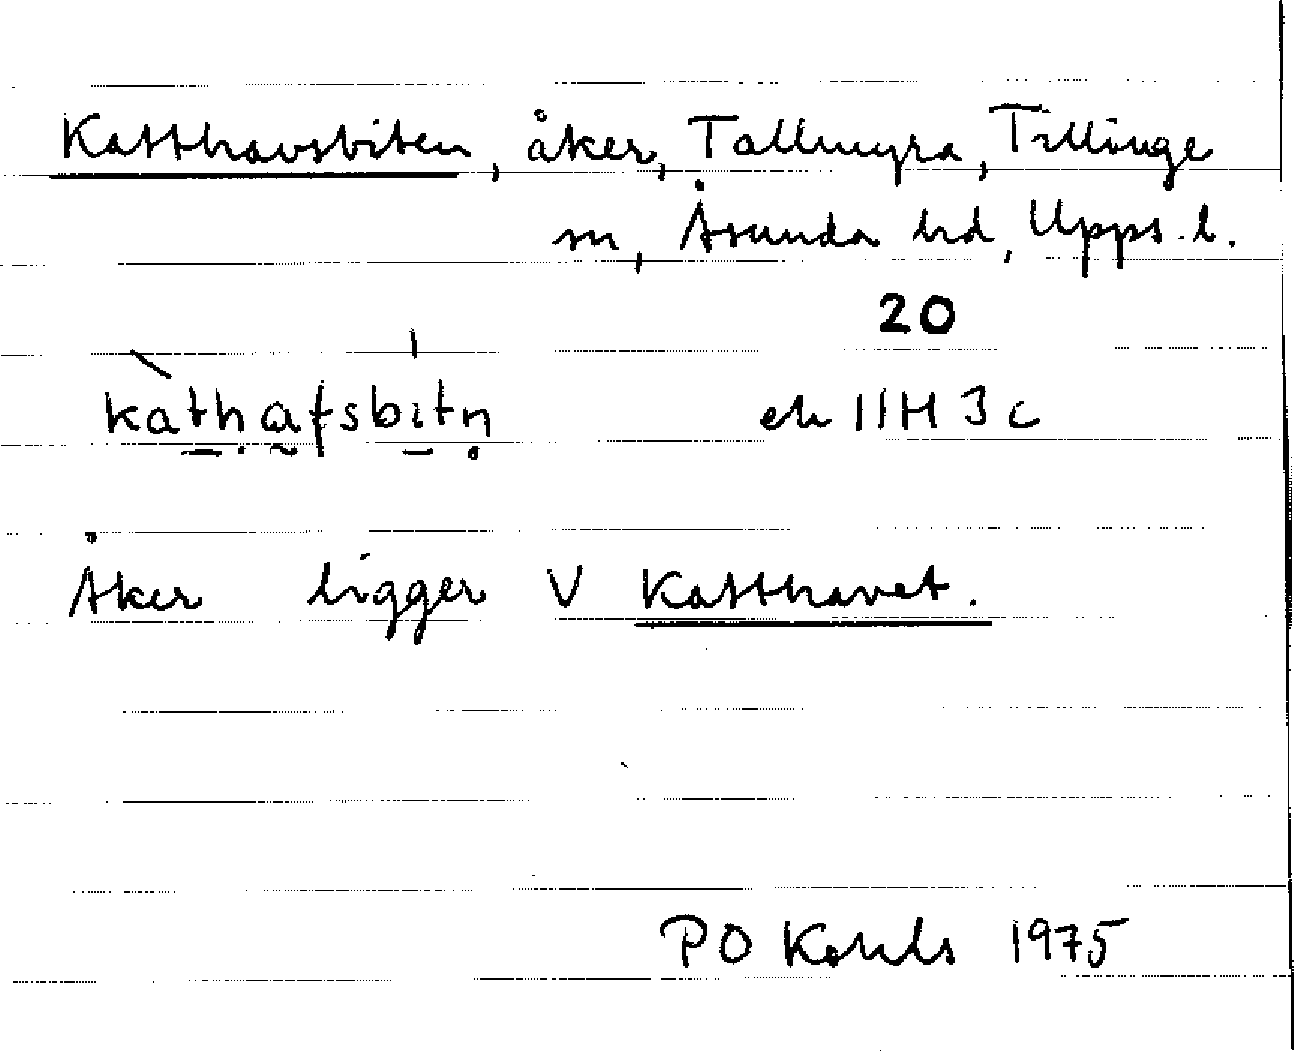 Katthavsbiten, åker, Tallmyra, Tillinge
sn, Åsunda hd, Upps. l.
20
kathafsbitn ek 11H 3c
Åker ligger V Katthavet.
PO 1975